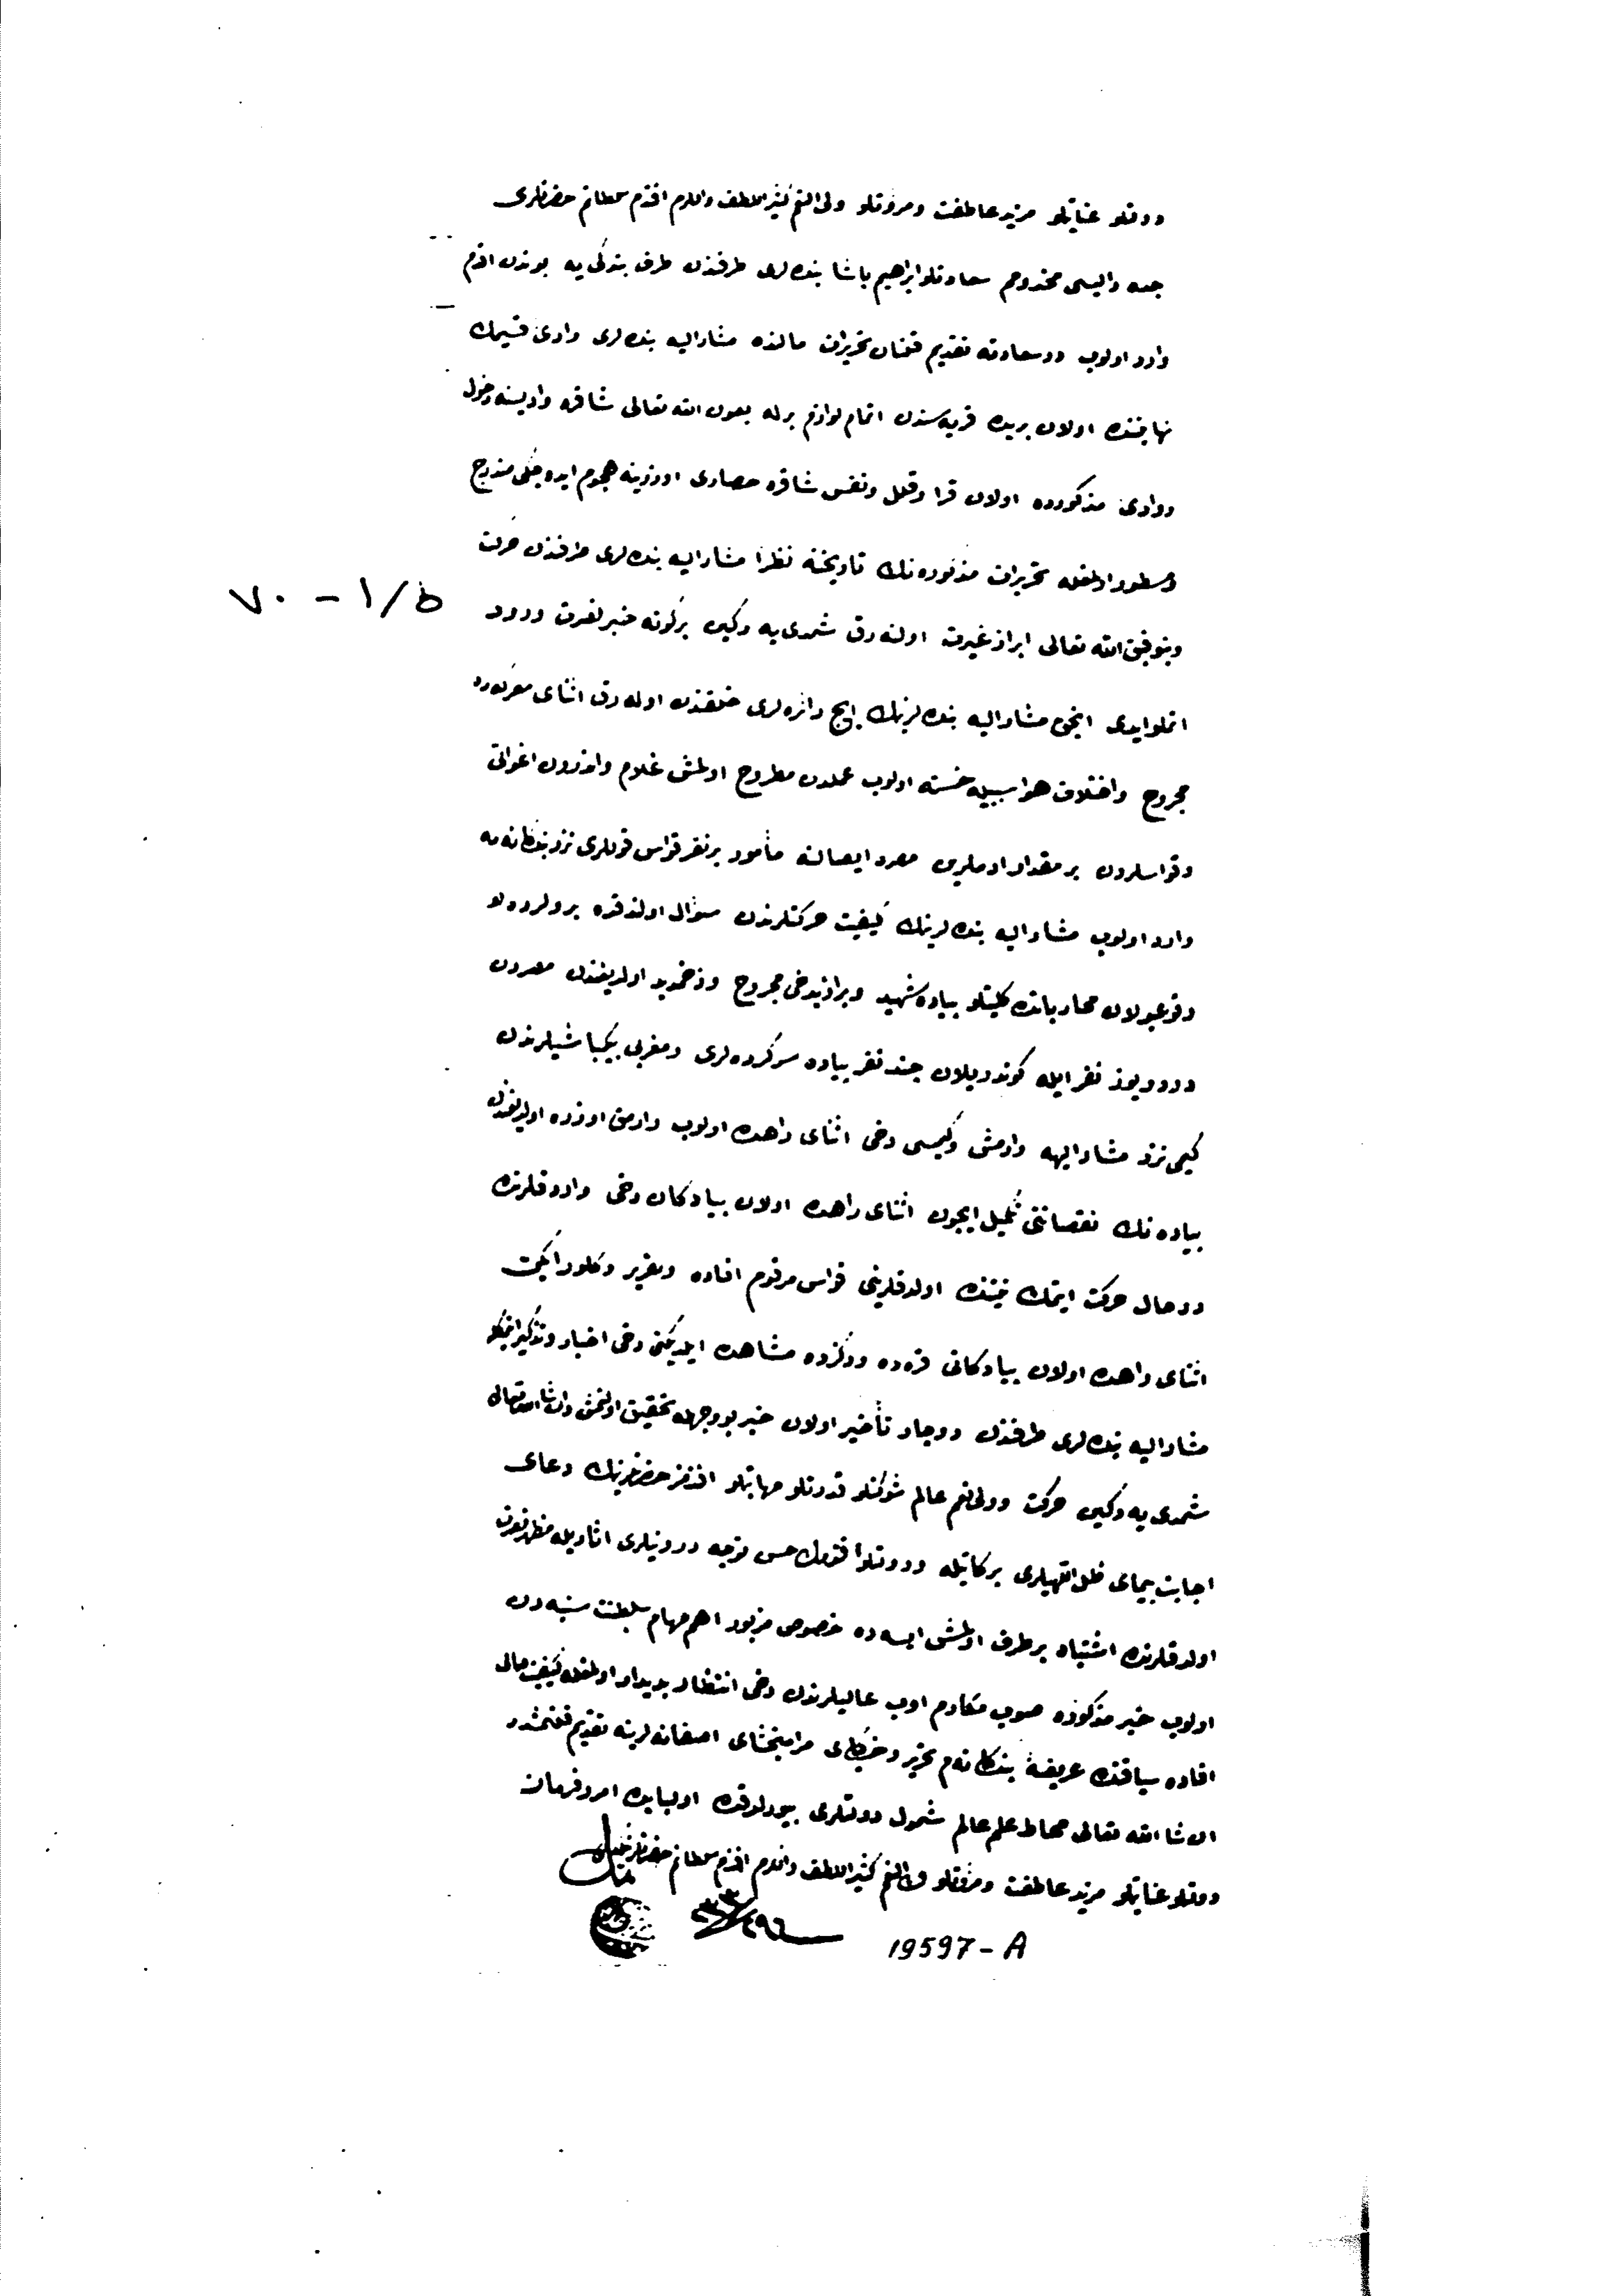 دولتلو عنايتلو مزيد عاطفت ومروتلو ولى النعم كثير اللطف والكرم افندم سلطانم حضرتلرى
جده واليسى مخدومم سعادتلو ابراهيم پاشا بنده لرى طرفندن طرف بندگى يه بوندن اقدم
وارد اولوب در سعادته تقديم قلنان تحريرات مآلنده مشار اليه بنده لرى وادى قسيمك
نهايتنده اولان بريده قريه سندن اتمام لوازم برله بعون الله تعالى شاقره واديسنه دخول
ووادى مذكورده اولان قرا وقلل ونفس شاقره حصارى اوزرينه هجوم ايده جكى مندرج
ومسطور اولمغله تحريرات مذكوره نك تاريخنه نظرا مشار اليه بنده لرى طرفندن حركت
وبتوفيق الله تعالى ابراز غيرت اولنه رق شمدى يه دكين بركونه خبر نصرت ورود
اتملو ايدى انجق مشار اليه بنده لرينك ايچ دائره لرى خلقندن اوله رق اثناى معركه ده
مجروح واختلاف هوا سببيله خسته اولوب عملدن مطروح اولمش غلام واندرون اغواتى
وقواسلردن بر مقدار ادملرى مصره ايصالنه مأمور بر نفر قواس قوللرى نزد بندكانه مه
وارد اولوب مشار اليه بنده لرينك كيفيت حركتلرندن سؤال اولندقده
وقوعبولان محارباتده كليتلو پياده شهيد وبرازيدخى مجروح وزخمدار اولديغندن مصردن
يوز نفر ايله كوندريلان چند نفر پياده سركرده لرى ومغربى بيكباشيلرندن
كيمى نزد مشار اليهه وارمش وكيميسى دخى اثناى راهده اولوب وارمق اوزره اولديغندن
پياده نك نقصاننى تكميل ايچون اثناى راهده اولان پيادكان دخى واردقلرنده
در حال حركت ايتمك نيتنده اولدقلرينى قواس مرقوم افاده وتقرير
اثناى راهده اولان پيادكانى قره ده ودكزده مشاهده ايلديكنى دخى اخبار وتذكير
مشار اليه بنده لرى طرفندن دوچار تأخير اولان خبر بووجهله تحقيق اولنمش وان شاء الله تعالى
شمدى يه دكين حركت وولى نعم عالم شوكتلو قدرتلو مهابتلو افندمز حضرتلرينك دعاى
اجابت پيماى ظل اللهيلرى بركاتيله ودولتلو افندمك حسن توجه درونيلرى اثاريله مظهر نصرت
اولدقلرنده اشتباه برطرف اولمش ايسه ده خصوص مزبور اهم مهام سلطنت سنيه دن
اولوب خبر مذكوره صوب مكارم اوب عاليلرندن دخى انتظار بديدار اولمغله كيفيت حالى
افاده سياقنده عريضه بندكانه م تحرير وخاكپاى مرامبخشاى اصفانه لرينه تقديم قلنمشدر
ان شا الله تعالى محاط علم عالم شمول دولتلرى بيورلدقده اولبابده امر وفرمان
دولتلو عنايتلو مزيد عاطفت ومروتلو ولى النعم كثير اللطف والكرم افندم سلطانم حضرتلرينكدر
٧٠ - ١/٥
19597-A